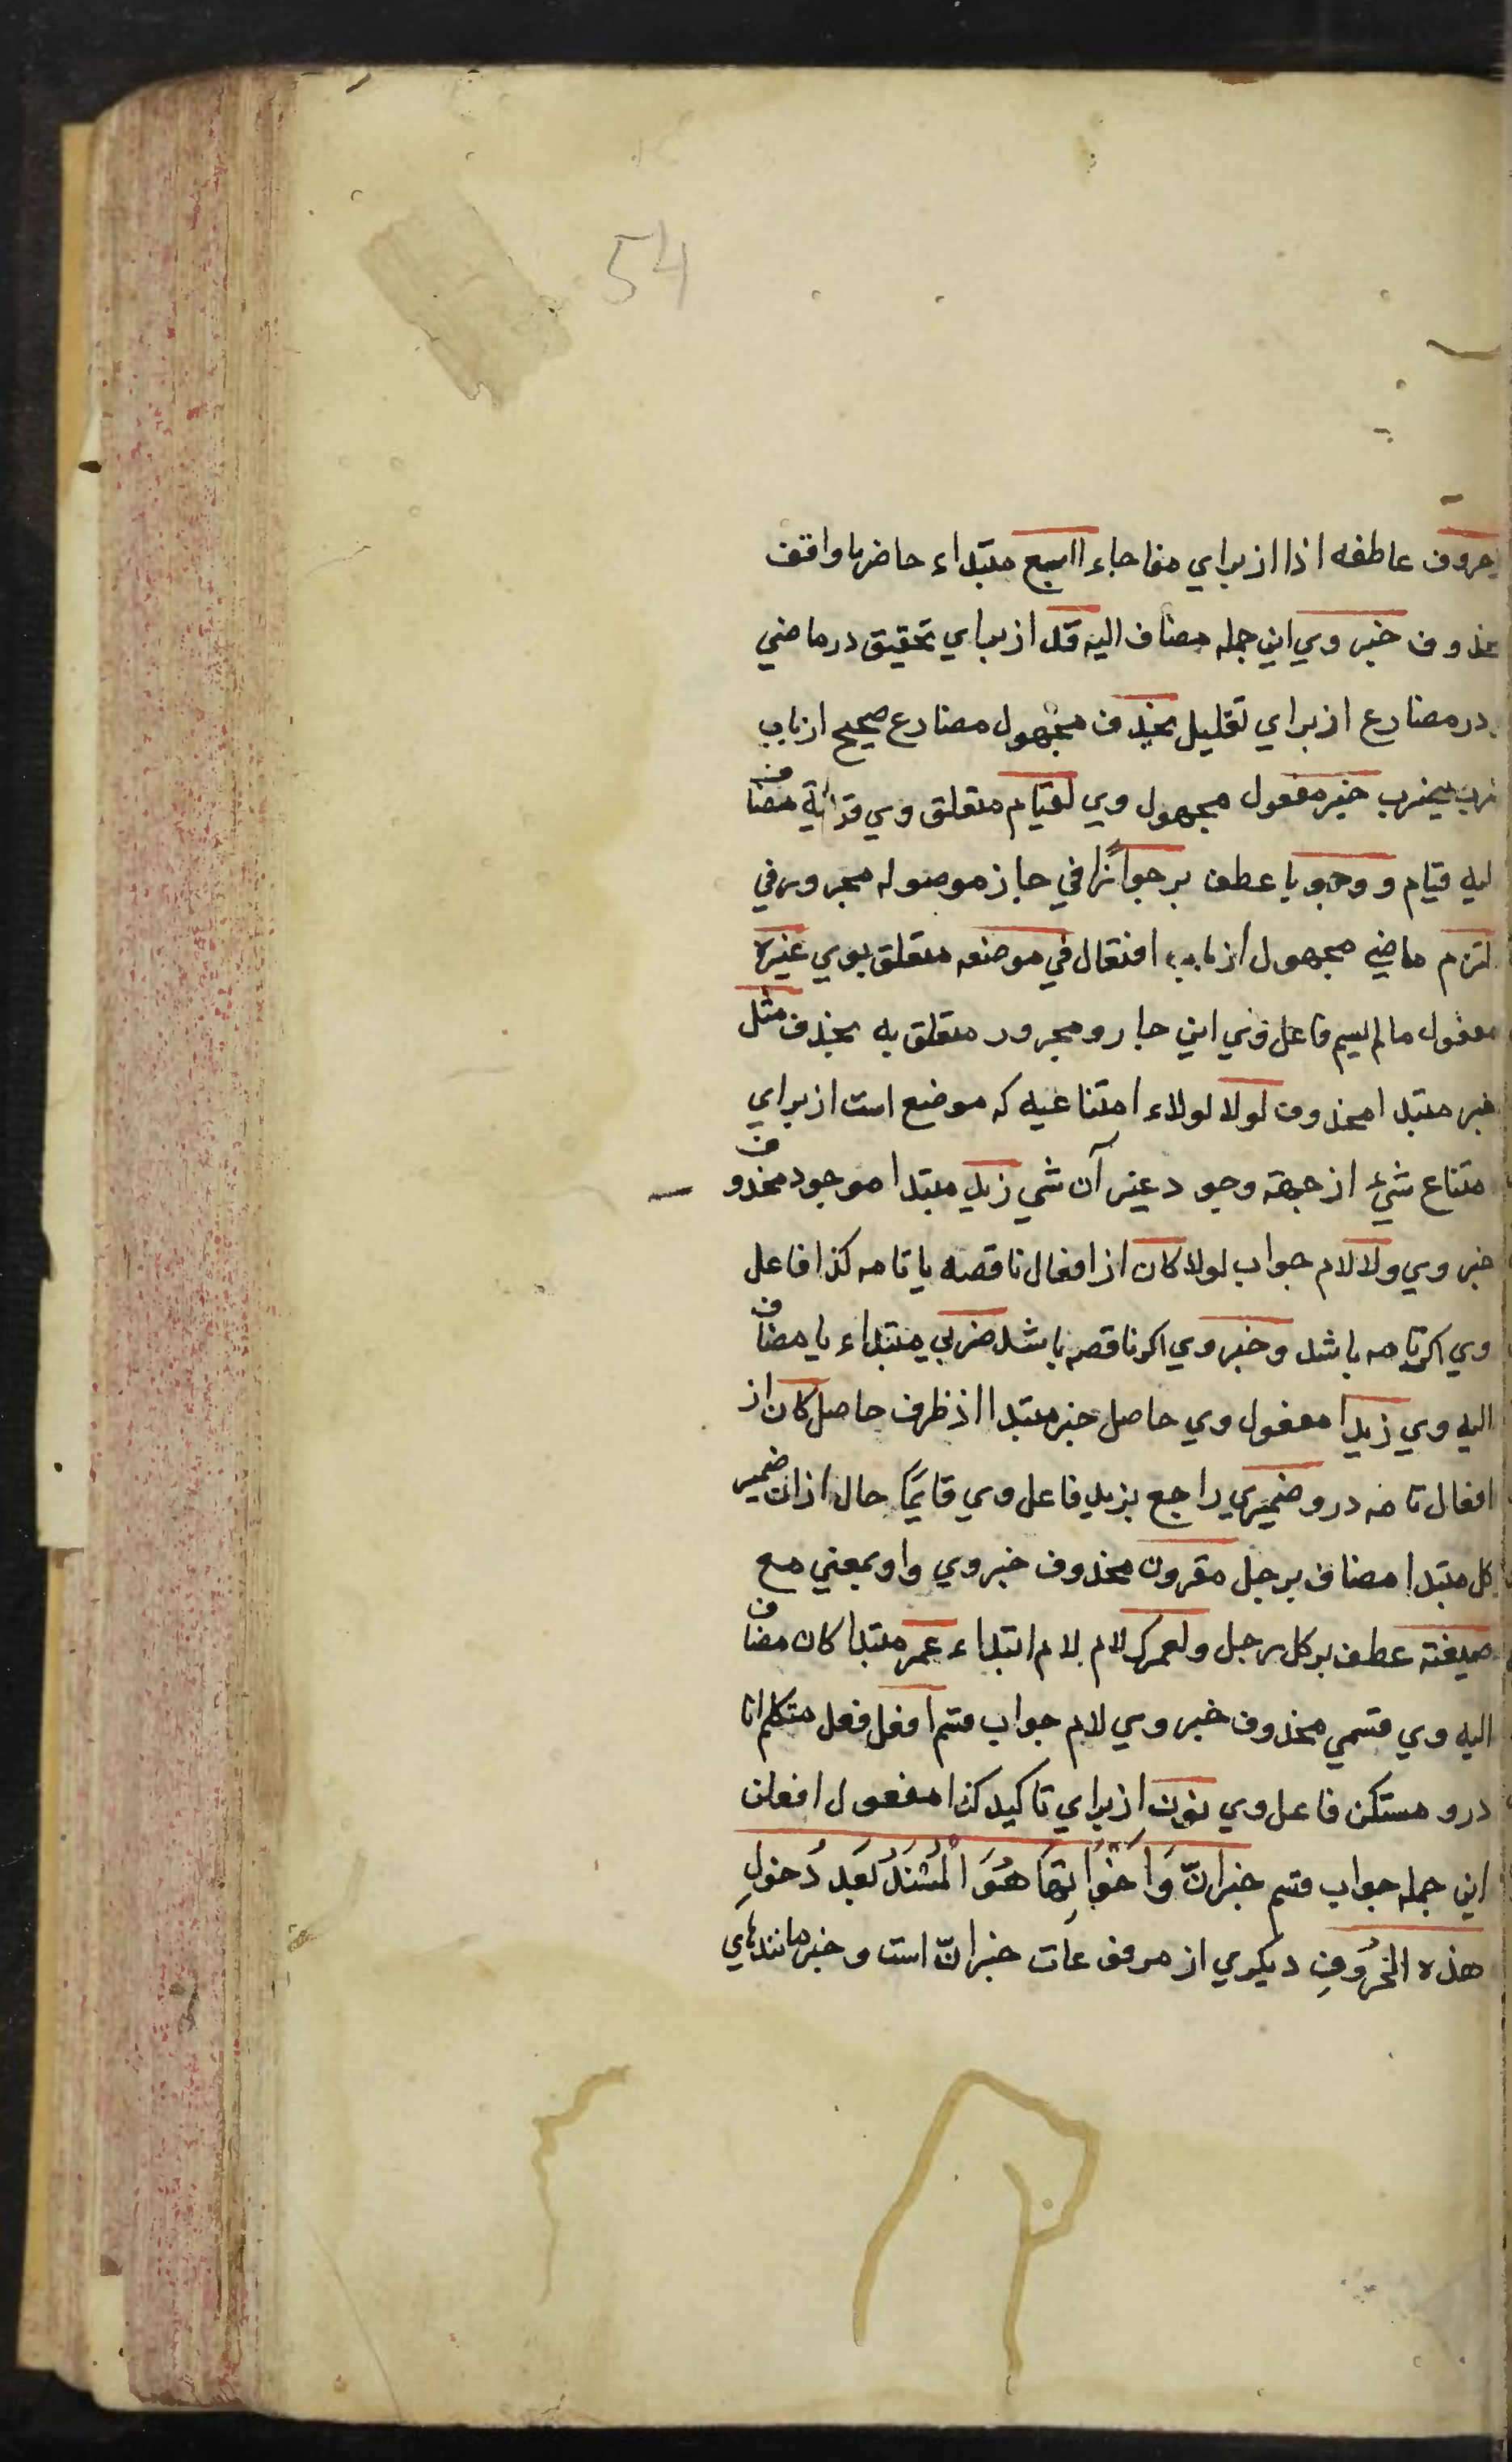 54
حروف عاطفه اذا از براي مفاجاء السبع مبتداء حاضر يا واقف
محذوف خبر وي اين جمله مضاف اليه قد از براي تحقيق در ماضي
در مضارع از براي تقليل يحذف مجهول مضارع صحيح از باب
ضرب يضرب خبر مفعول مجهول وي لقيام متعلق وي قرائية مضاف
اليه قيام ووجوبا عطف بر جوازا في جار موصوله مجرور في
التزم ماضي مجهول از باب افتعال في موضعه متعلق بوي غيره
مفعول مالم يسم فاعل وي اين جار ومجرور متعلق به بحذف مثل
خبر مبتدا محذوف لولا لولاء امتناعيه كه موضع است از براي
متناع شيء از جهة وجود غير آن شي زيد مبتدا موجود محذوف
خبر وي ولا لام جواب لولا كان از افعال ناقصه يا تامه كذا فاعل
وي اكر تامه باشد وخبر وي اكر ناقصه باشد ضربي مبتداء يا مضاف
اليه وي زيدا مفعول وي حاصل خبر مبتدا اذ ظرف حاصل كان از
افعال تامه درو ضميري راجع بزيد فاعل وي قايما حال از ان ضمير
كل مبتدا مضاف برجل مقرون محذوف خبر وي واو بمعني مع
ضيعته عطف بر كل رجل ولعمرك لام لام ابتداء عمر مبتدا كان مضاف
اليه وي قسمي محذوف خبر وي لام جواب قسم افعل فعل متكلم انا
درو مستكن فاعل وي نون از براي تاكيد كذا مفعول افعلن
اين جمله جواب قسم خبر انّ وَاَخَوَاتِهَا هُوَ الْمُسْنَدُ بَعْدَ دُخولِ
هذه الحُرُوفِ ديكري از مرفوعات خبر انّ است وخبر مانندهاي